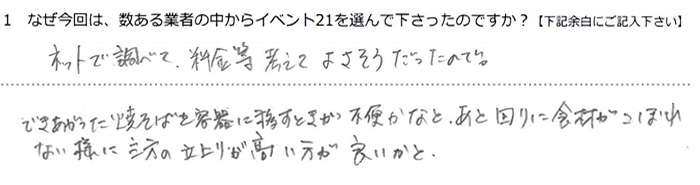 1 なぜ今回は、数ある業者の中からイベント21を選んで下さったのですか？【下記余白にご記入下さい】
ネットで調べて、料金等考えてよさそうだったので。
できあがった焼そばを容器に移すときが不便かなと、あと回りに食材がこぼれ
ない様に三方の立上りが高い方が良いかと、